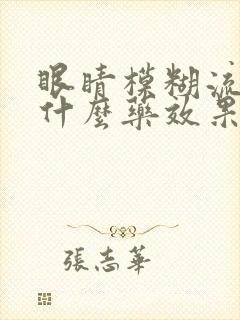 眼睛模糊流
什麼藥效果
張志華